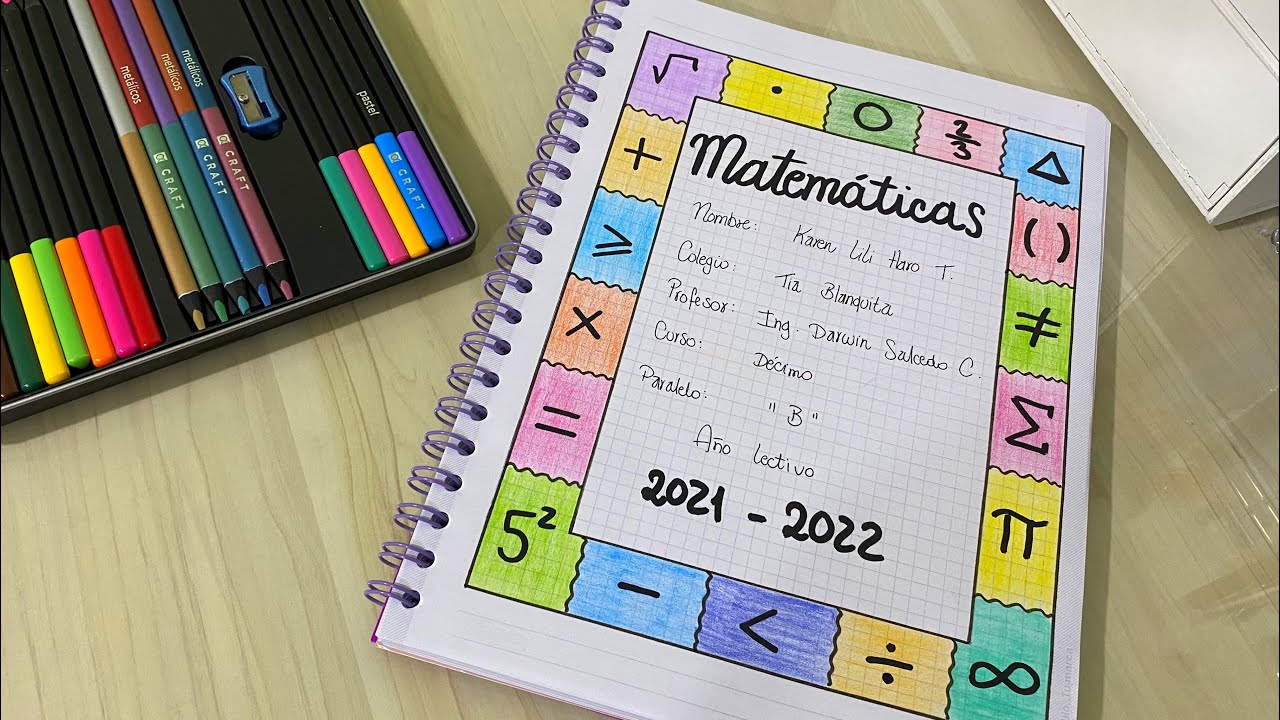 metálicos
metálicos
CRAFT
CRAFT
CRAFT
pastel
√ · O 2/3 Δ
+ ( )
≥ ≠
× Σ
= π
5² - < ÷ ∞
Matemáticas
Nombre: Karen Lili Haro T.
Colegio: Tía Blanquita
Profesor: Ing. Darwin Salcedo C.
Curso: Décimo
Paralelo: "B"
Año lectivo
2021 - 2022